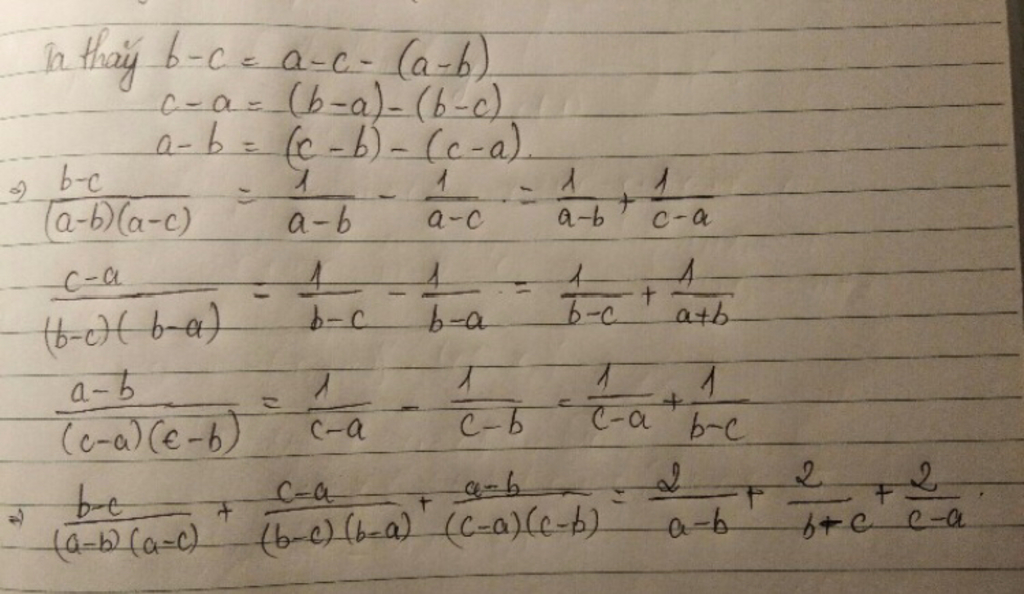 Ta thấy b-c = a-c - (a-b)
c-a = (b-a)-(b-c)
a-b = (c-b)-(c-a).
⇒ \frac{b-c}{(a-b)(a-c)} = \frac{1}{a-b} - \frac{1}{a-c} = \frac{1}{a-b} + \frac{1}{c-a}
\frac{c-a}{(b-c)(b-a)} = \frac{1}{b-c} - \frac{1}{b-a} = \frac{1}{b-c} + \frac{1}{a+b}
\frac{a-b}{(c-a)(c-b)} = \frac{1}{c-a} - \frac{1}{c-b} = \frac{1}{c-a} + \frac{1}{b-c}
⇒ \frac{b-c}{(a-b)(a-c)} + \frac{c-a}{(b-c)(b-a)} + \frac{a-b}{(c-a)(c-b)} = \frac{2}{a-b} + \frac{2}{b+c} + \frac{2}{c-a}.